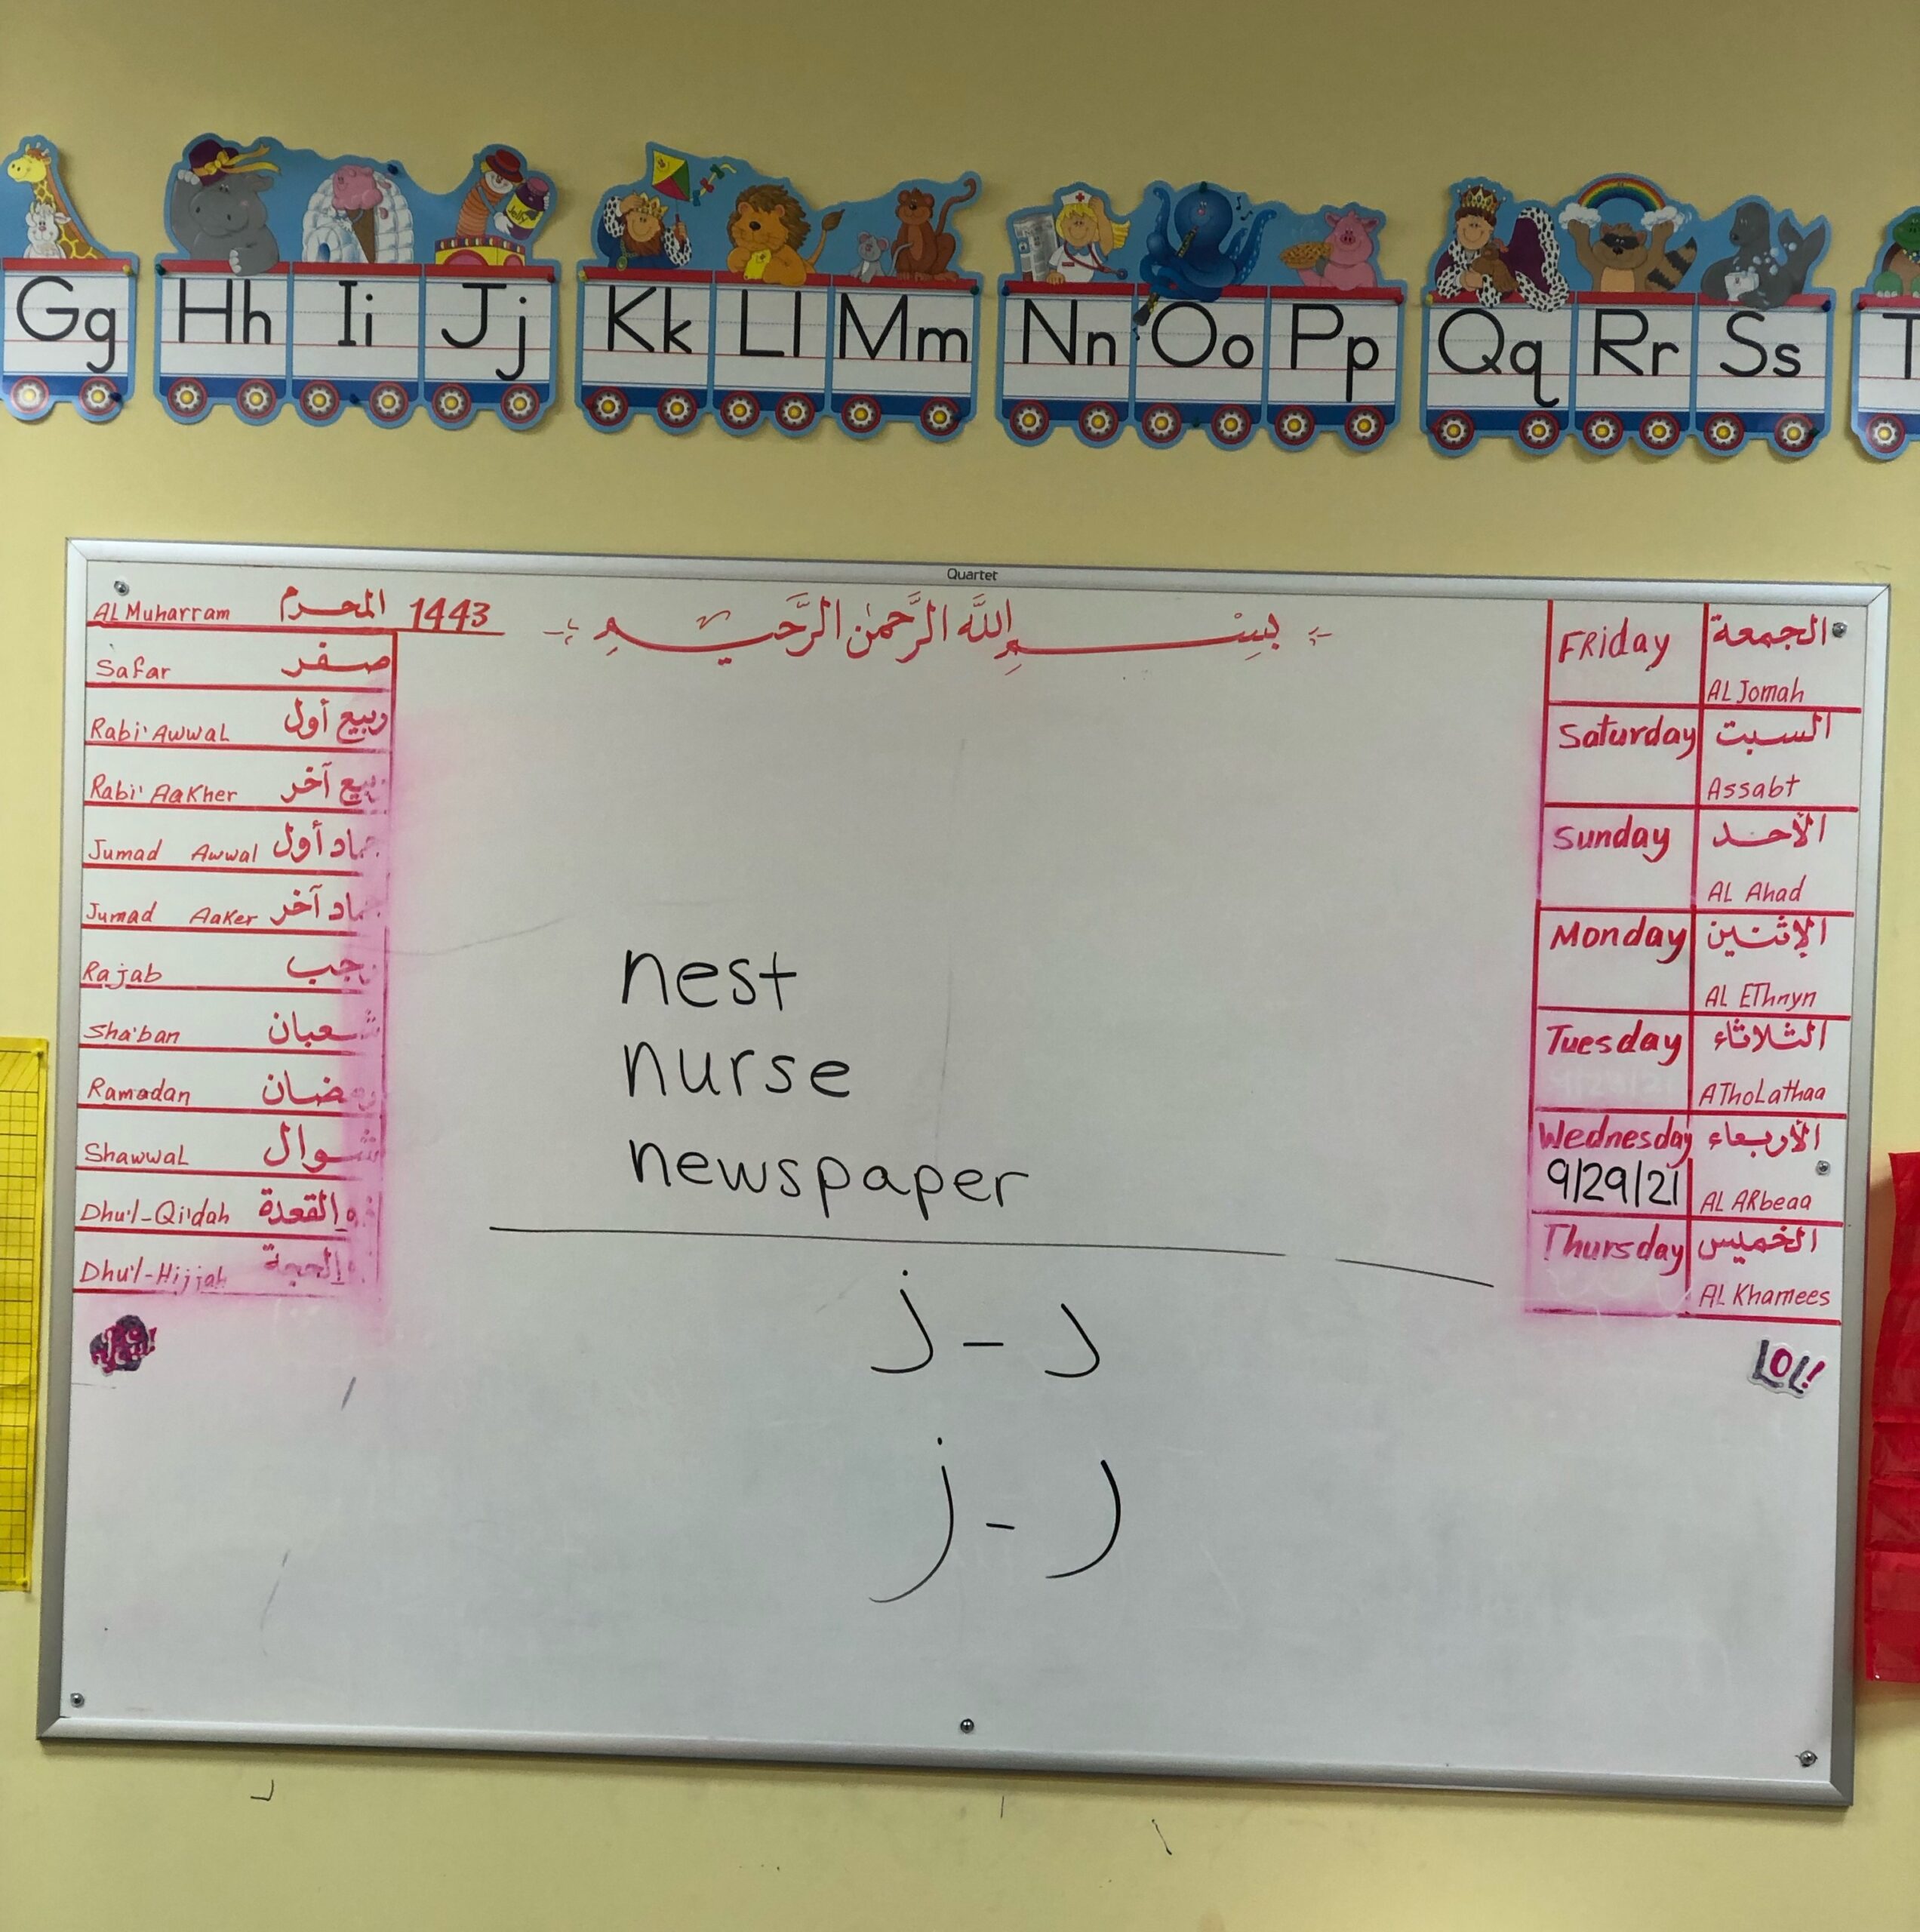 Gg Hh Ii Jj Kk Ll Mm Nn Oo Pp Qq Rr Ss T
Jelly
Quartet
AL Muharram المحرم 1443
Safar صفر
Rabi' Awwal ربيع أول
Rabi' Aakher بيع آخر
Jumad Awwal ماد أول
Jumad Aaker ماد آخر
Rajab جب
Sha'ban شعبان
Ramadan رمضان
Shawwal شوال
Dhu'l-Qi'dah القعدة
Dhu'l-Hijjah الحجة
بِسْمِ اللَّهِ الرَّحمٰنِ الرَّحِيمِ
nest
nurse
newspaper
د - ذ
ر - ز
Friday الجمعة
AL Jomah
Saturday السبت
Assabt
Sunday الأحد
AL Ahad
Monday الإثنين
AL EThnyn
Tuesday الثلاثاء
AThoLathaa
Wednesday الأربعاء
9/29/21 AL ARbeaa
Thursday الخميس
AL Khamees
LOL!